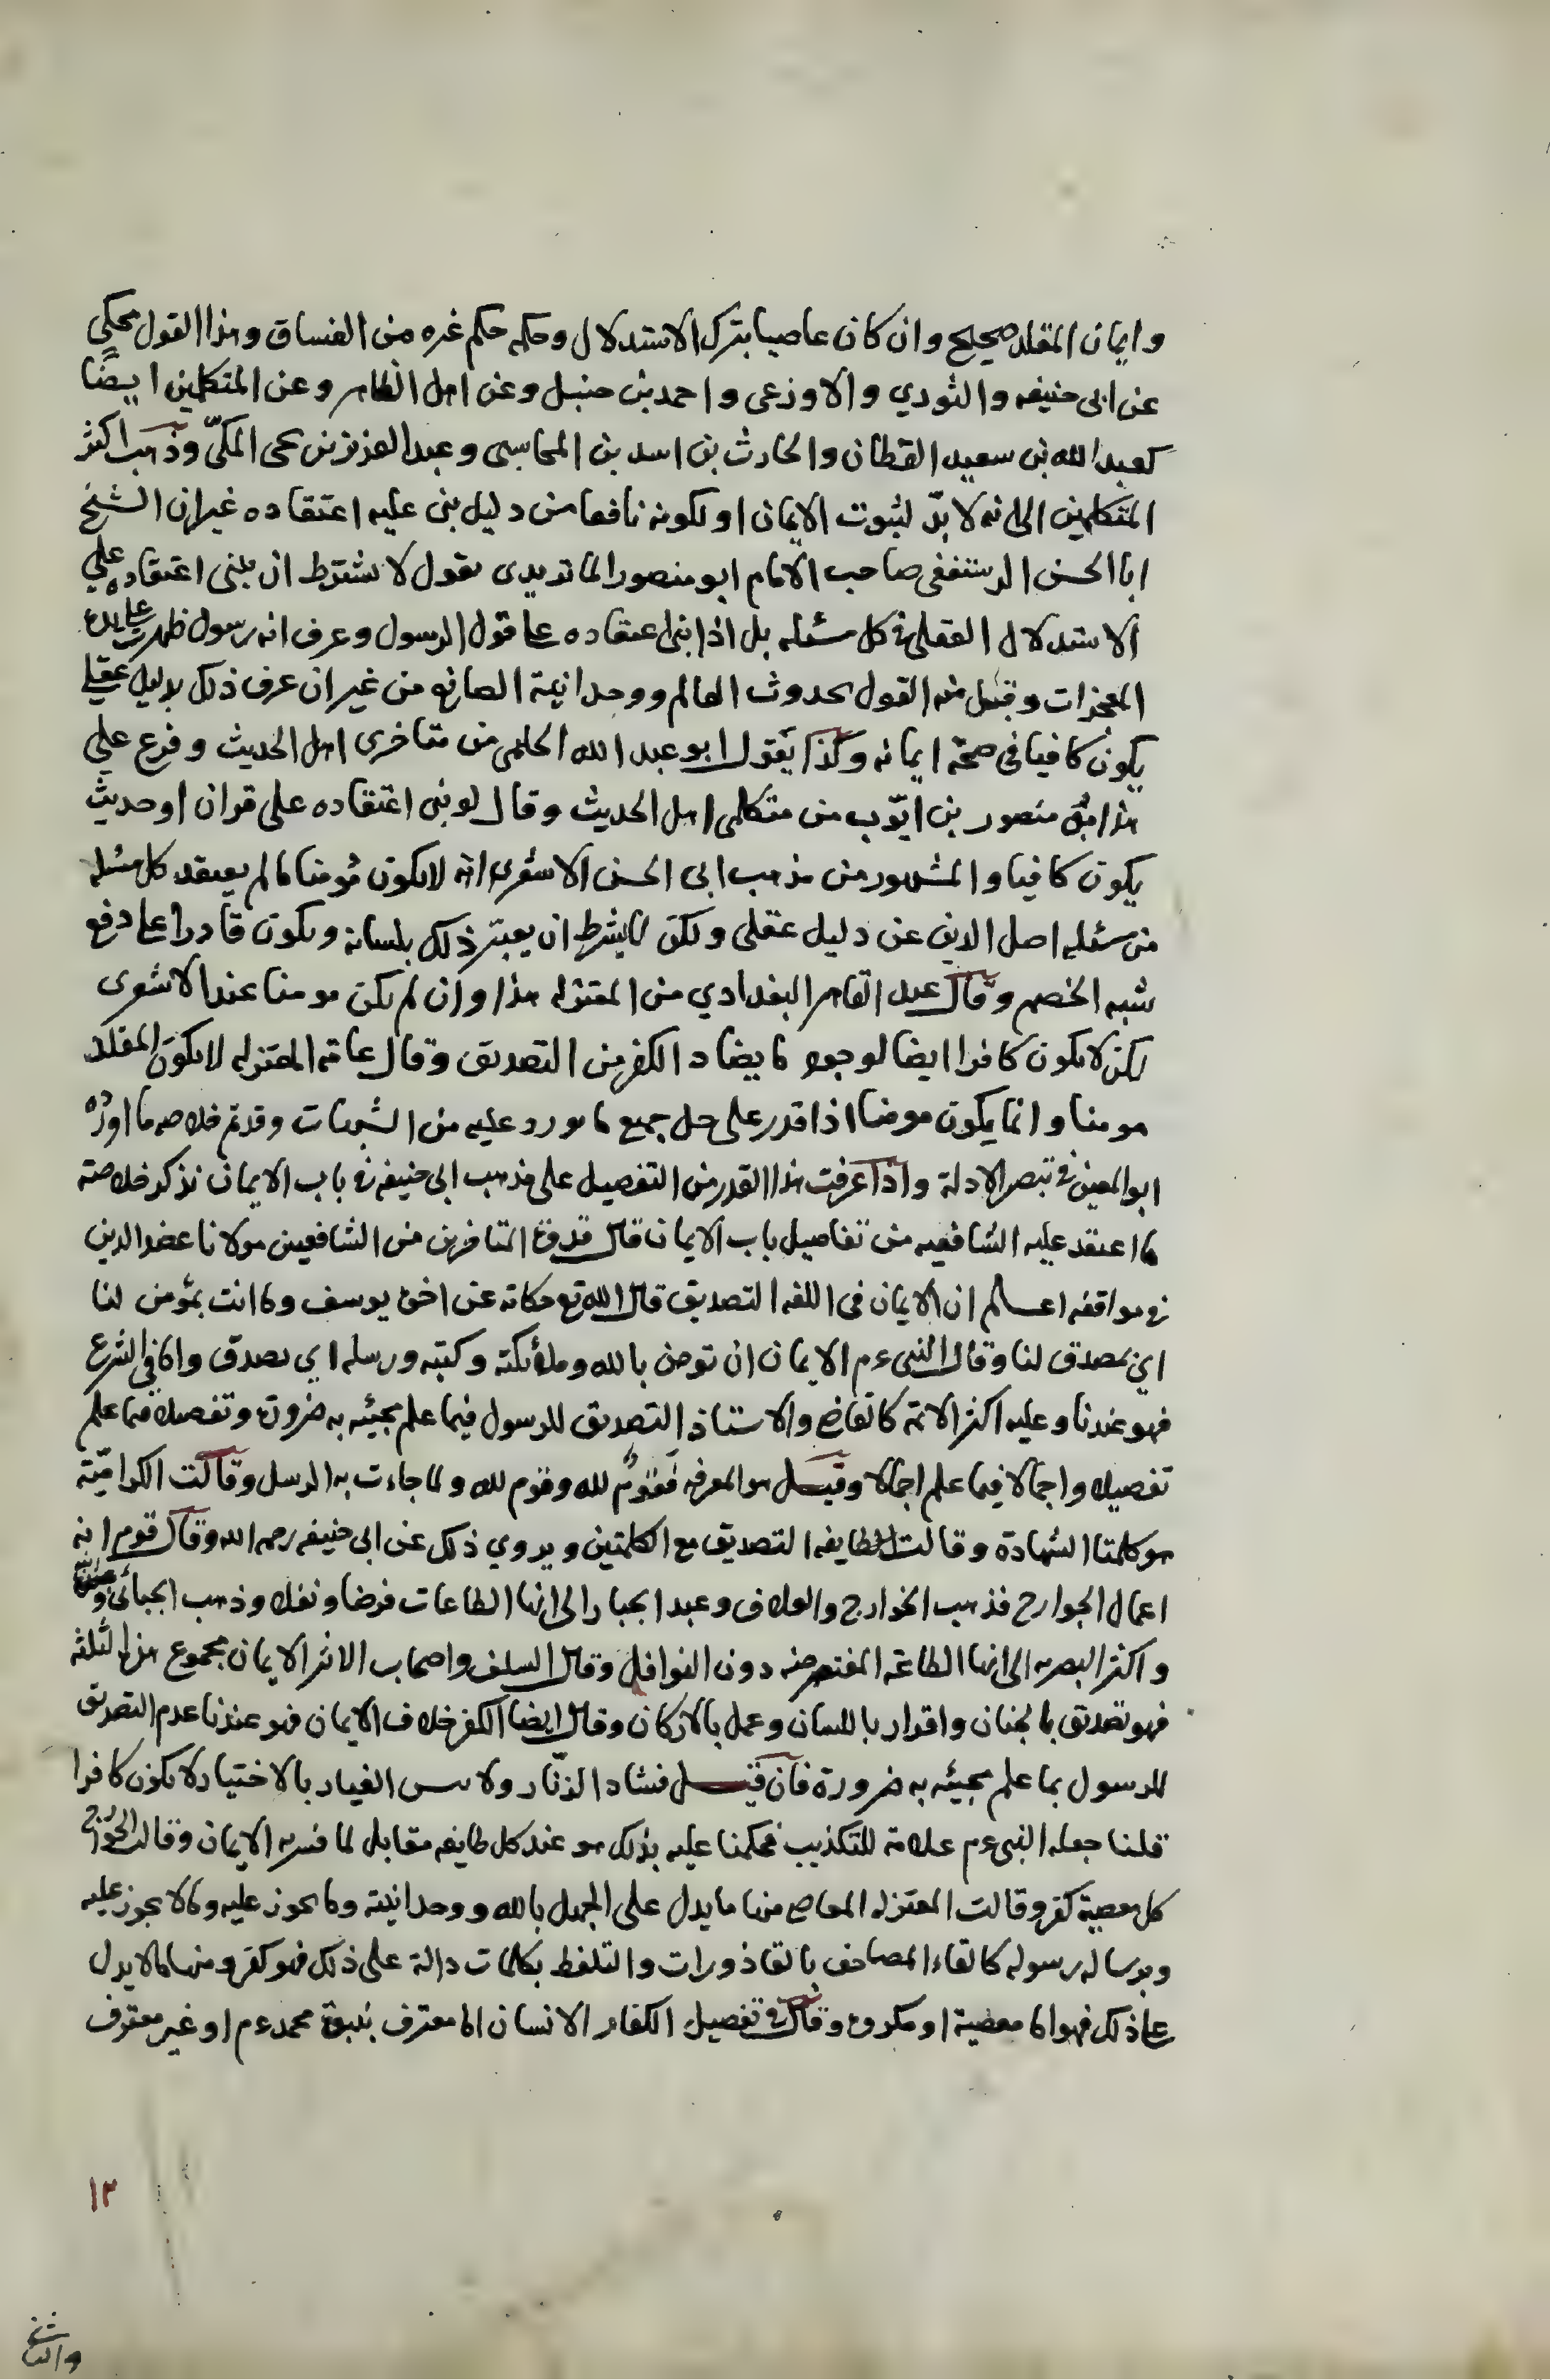 وايمان المقلد صحيح وان كان عاصيا بترك الاستدلال وحكمه حكم غيره من الفساق وهذا القول محكي
عن ابي حنيفه والثوري والاوزعى واحمد بن حنبل وعن اهل الظاهر وعن المتكلمين ايضًا
كعبد الله بن سعيد القطان والحارث بن اسد بن المحاسبى وعبد العزيز بن يحى المكىّ وذهب اكثر
المتكلمين الى انه لا بدّ لثبوت الايمان او لكونه نافعا من دليل بنى عليه اعتقاده غير ان الشيخ
ابا الحسن الرستغفنى صاحب الامام ابو منصور الماتريدى يقول لا يشترط ان يبنى اعتقاده على
الاستدلال العقلى فى كل مسئله بل اذا بنى اعتقاده على قول الرسول وعرف انه رسول ظهرت على يده
المعجزات وقبل منه القول بحدوث العالم ووحدانية الصانع من غير ان عرف ذلك بدليل عقلى
يكون كافيا فى صحة ايمانه وكذا يقول ابو عبد الله الحليمى من متاخرى اهل الحديث وفرع على
هذا منصور بن ايّوب من متكلمى اهل الحديث وقال لو بنى اعتقاده على قران او حديث
يكون كافيا والمشهور من مذهب ابى الحسن الاشعرى انه لا يكون مؤمنا ما لم يعتقد كل مسئله
من مسئله اصل الدين عن دليل عقلى ولكن لا يشرط ان يعبّر ذلك بلسانه ويكون قادرا على دفع
شبه الخصم وقال عبد القاهر البغدادي من المعتزله هذا وان لم يكن مومنا عند الاشعرى
لكن لا يكون كافرا ايضا لوجود ما يضاد الكفر من التصديق وقال عامة المعتزله لا يكون المقلد
مومنا وانما يكون مومنا اذا قدر على حل جميع ما يورد عليه من الشبهات وقد تم خلاصه ما اورده
ابو المعين فى تبصر الادلة واذا عرفت هذا القدر من التفصيل على مذهب ابى حنيفه فى باب الايمان نذكر خلاصة
ما اعتقد عليه الشافعيه من تفاصيل باب الايمان قال قدوة المتاخرين من الشافعيين مولانا عضد الدين
فى مواقفه اعلم ان الايمان فى اللغه التصديق قال الله تع حكاية عن اخوة يوسف وما انت بمؤمن لنا
اي بمصدق لنا وقال النبى ءم الايمان ان تومن بالله وملائكته وكتبه ورسله اي تصدق واما فى الشرع
فهو عندنا وعليه اكثر الائمة كالقاضى والاستاذ التصديق للرسول فيما علم مجيئه به ضرورة وتفصيلا فيما علم
تفصيلا واجمالا فيما علم اجمالا وقيل هو المعرفه فقوم لله وقوم لله ولما جاءت به الرسل وقالت الكراميّة
هو كلمتا الشهادة وقالت طايفه التصديق مع الكلمتين ويروي ذلك عن ابى حنيفه رحمه الله وقال قوم انه
اعمال الجوارح فذهب الخوارج والعلاف وعبد الجبار الى انها الطاعات فرضا ونفلا وذهب الجبائى وابنه
واكثر البصريه الى انها الطاعة المفترضه دون النوافل وقال السلف واصحاب الاثر الايمان مجموع هذه الثلثه
فهو تصديق بالجنان واقرار باللسان وعمل بالاركان وقال ايضا الكفر خلاف الايمان فهو عندنا عدم التصديق
للرسول بما علم مجيئه به ضرورة فان قيل فشاد الزنّار ولابس الغيار بالاختيار لا يكون كافرا
قلنا جعله النبى ءم علامة للتكذيب فحكمنا عليه بذلك هو عند كل طايفه مقابل لما فسر به الايمان وقالت الخوارج
كل معصية كفر وقالت المعتزله المعاصى منها ما يدل على الجهل بالله ووحدانيته وما يجوز عليه وما لا يجوز عليه
وبرساله رسوله كالقاء المصاحف بالقاذورات والتلفظ بكلمات دالة على ذلك فهو كفر ومنها ما لا يدل
على ذلك فهو اما معصية او مكروه وقال فى تفصيل الكفار الانسان اما معترف بنبوة محمد ءم او غير معترف
١٣
والثا